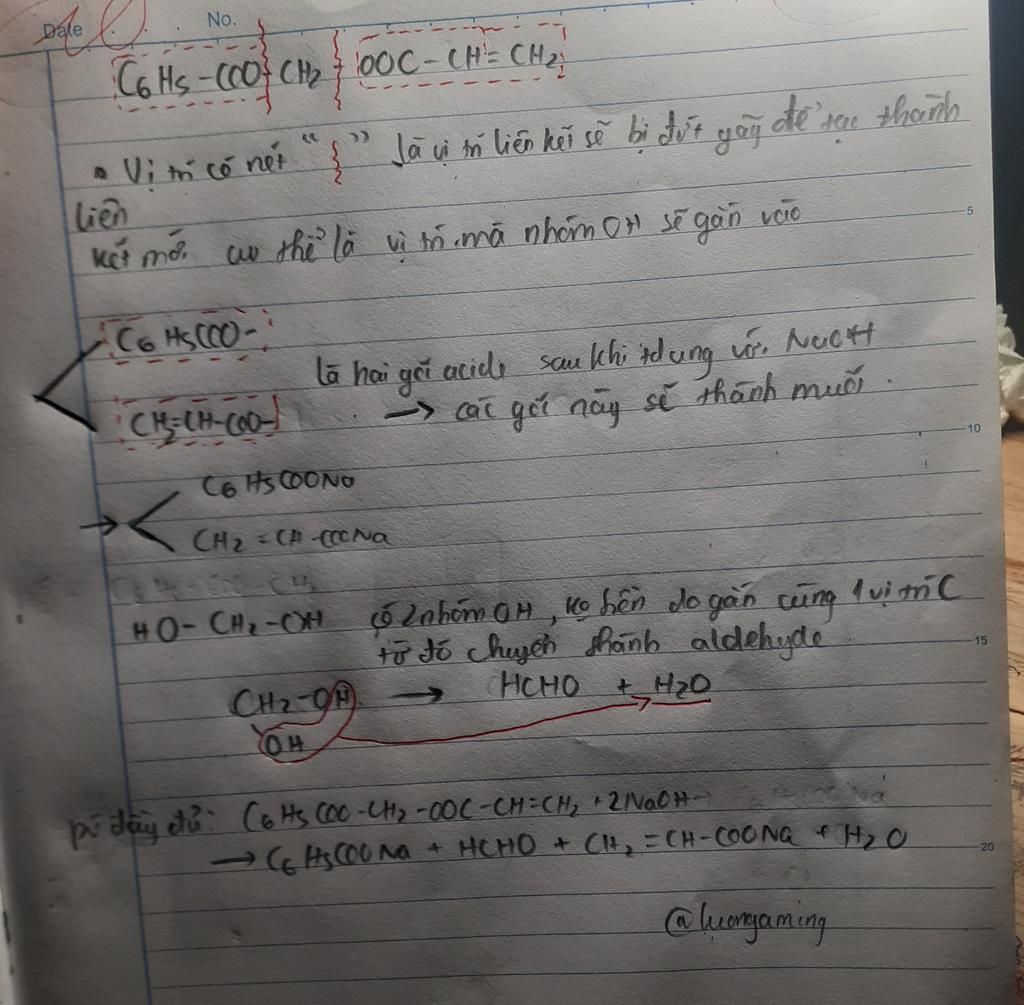 Date No.
C6H5-COO-CH2-OOC-CH=CH2
• Vị trí có nét "⧘" là vị trí liên kết sẽ bị đứt gãy để tạo thành
liên
kết mới cụ thể là vị trí mà nhóm OH sẽ gắn vào
5
C6H5COO-
là hai gốc acid, sau khi tdụng với NaOH
CH2=CH-COO-
→ các gốc này sẽ thành muối.
10
C6H5COONa
→
CH2=CH-COONa
HO-CH2-OH có 2 nhóm OH, ko bền do gắn cùng 1 vị trí C
từ đó chuyển thành aldehyde
15
CH2-OH → HCHO + H2O
OH
pứ đầy đủ: C6H5COO-CH2-OOC-CH=CH2 + 2NaOH
→ C6H5COONa + HCHO + CH2=CH-COONa + H2O
20
@luongaming